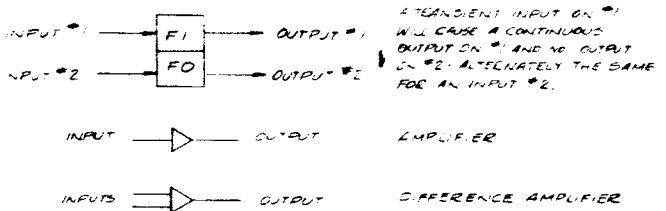 INPUT #1 F1 OUTPUT #1
INPUT #2 FO OUTPUT #2
A TRANSIENT INPUT ON #1
WILL CAUSE A CONTINUOUS
OUTPUT ON #1 AND NO OUTPUT
ON #2. ALTERNATELY THE SAME
FOR AN INPUT #2.
INPUT OUTPUT AMPLIFIER
INPUTS OUTPUT DIFFERENCE AMPLIFIER